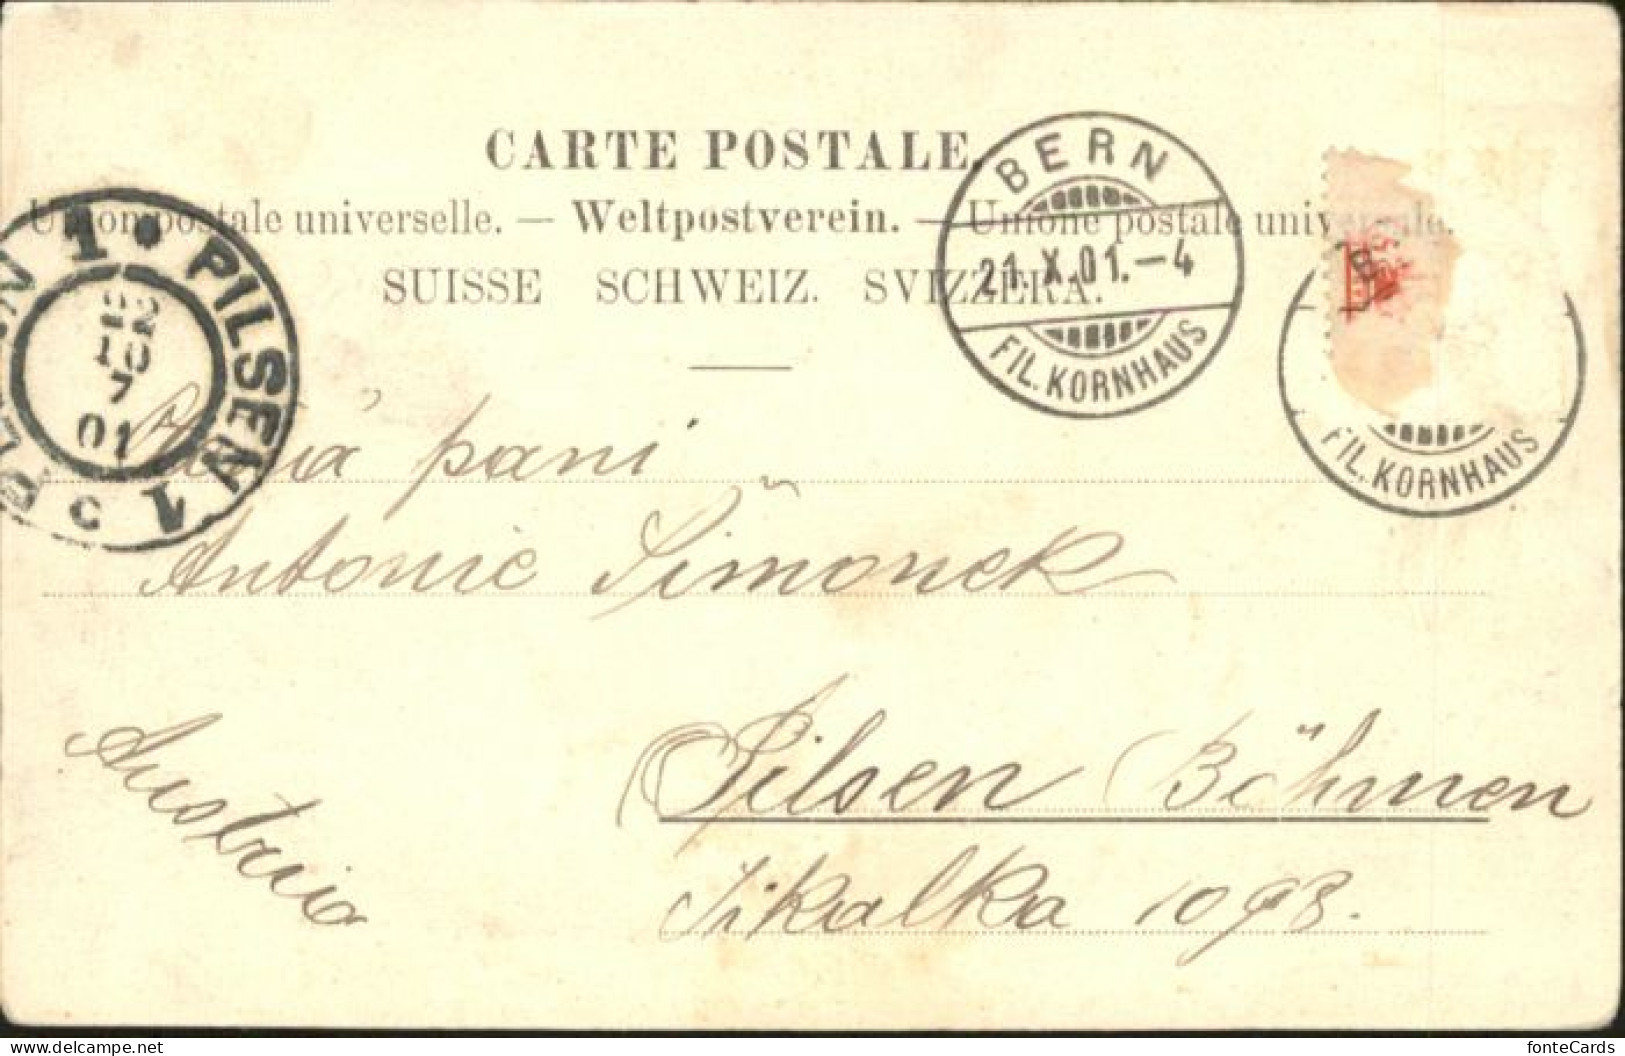 CARTE POSTALE.
Union postale universelle. — Weltpostverein. — Unione postale universale.
SUISSE SCHWEIZ. SVIZZERA.
BERN
21.X.01.–4
FIL. KORNHAUS
FIL. KORNHAUS
PILSEN 1
22
10
7
01
pani
Antonie Šimonek
Pilsen (Böhmen
Austria
Sikalka 1093.
fonteCards